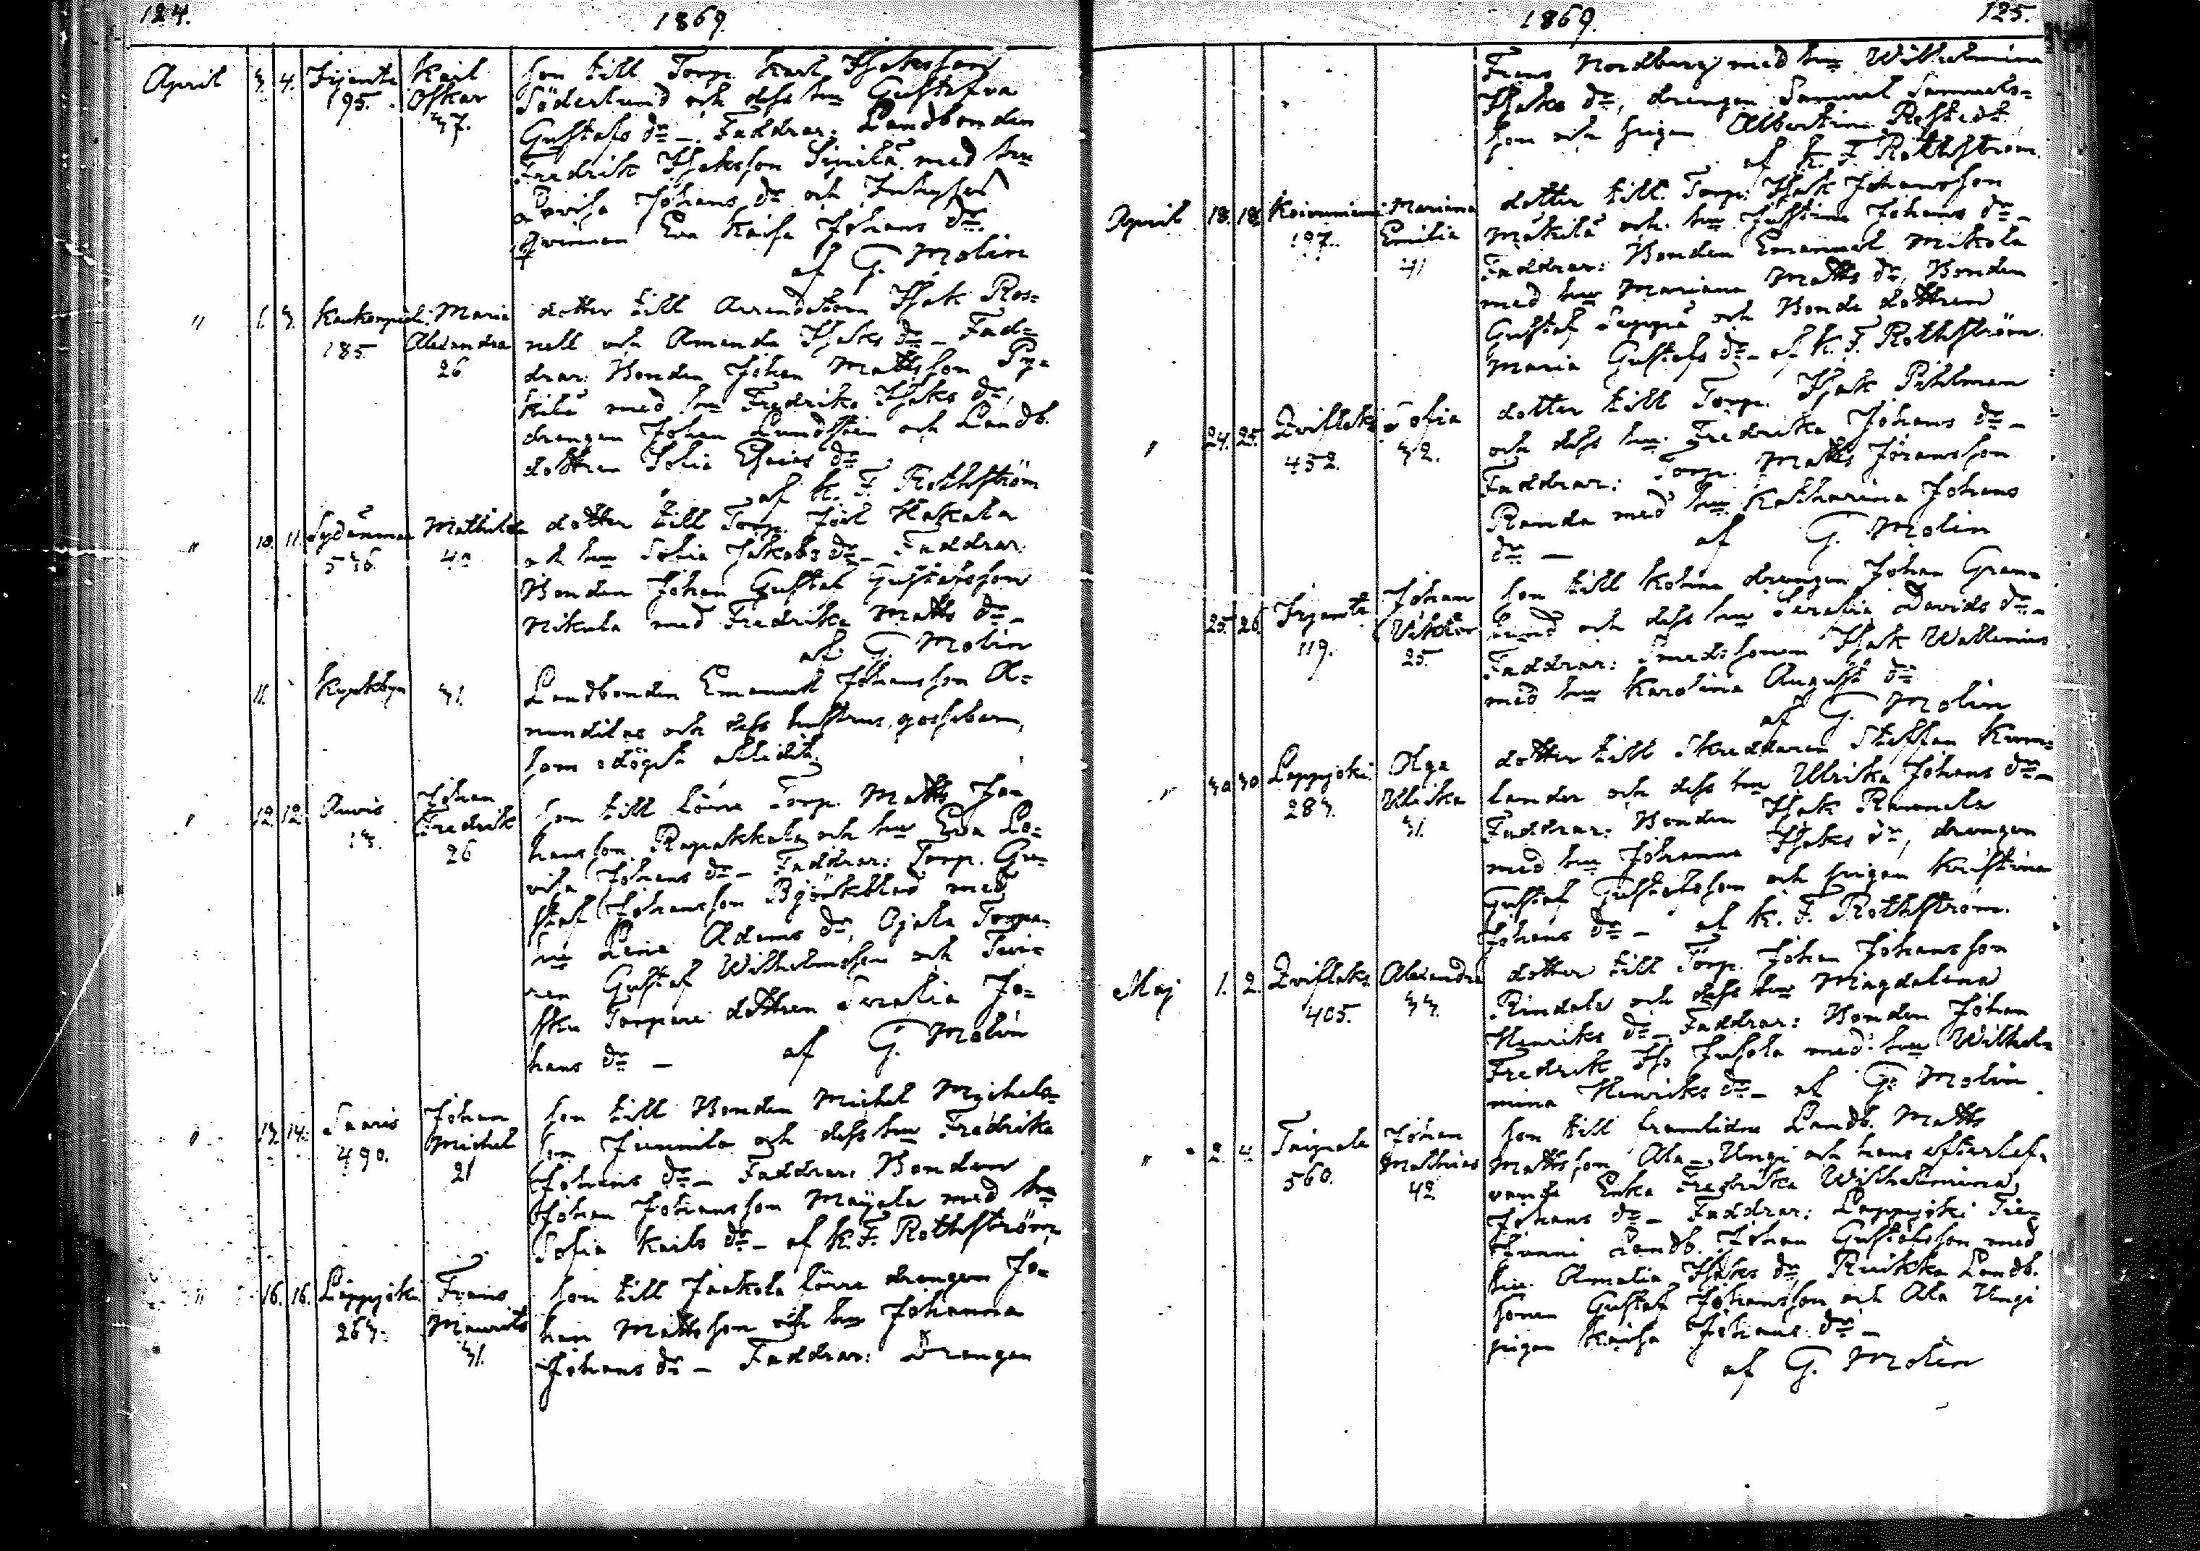 124.
1869.
April 3. 4. Irjanta Karl son till Torp. Karl Isaksson
195. Oskar Söderlund och dess hu Gustafva
37. Gustafs dr – Faddrar: Landbonden
Fredrik Isaksson Sipilä med hu
Lovisa Johans dr och Inhyses
qvinnan Eva Kaisa Johans dr
af G. Molin
" 1. 3. Kaukonpieli Maria dotter till Arrendatorn Isak Ros-
185. Alexandra nell och Amanda Isaks dr – Fad-
26 drar: Bonden Johan Mattsson Py-
kilä med hu Fredrika Isaks dr,
drengen Johan Lundsten och Landb.
dottren Sofia Esaias dr
af K. F. Rothström
" 10. 11. Sydänmaa Mathilda dotter till Torp. Joel Hakala
536. 40 och hu Sofia Jakobs dr – Faddrar:
Bonden Johan Gustaf Gustafsson
Nikula med Fredrika Matts dr –
af G. Molin
11. Kyrkbyn 31. Landbonden Emanuel Johansson A-
nundilas och dess hustrus gossebarn,
som odöpt afledit.
" 12. 12. Auvis Johan son till Löure Torp. Matts Jo-
13. Fredrik hansson Rapakkala och hu Eva Lo-
26 visa Johans dr – Faddrar: Torp. Gu-
staf Johansson Björkblad med
hu Lena Adams dr, Ojala Torpa-
ren Gustaf Wilhelmsson och
Torpare dottren Serafia Jo-
hans dr – af G. Molin
" 13. 14. Saaris Johan son till Bonden Michel Michels-
490. Michel son Junnila och dess hu Fredrika
21 Johans dr – Faddrar: Bonden
Johan Johansson Majala med hu
Sofia Karls dr – af K. F. Rothström
" 16. 16. Lappijoki Frans son till Jaakola Löure drengen Jo-
263. Maurits han Mattsson och hu Johanna
31. Johans dr – Faddrar: Drengen
1869.
125.
Frans Nordberg med hu Wilhelmina
Isaks dr, drengen Samuel Samuels-
son och pigan Albertina Rostedt
af K. F. Rothström
April 18. 18. Koivuniemi Mariana dotter till Torp. Isak Johansson
197. Emilia Mäkilä och hu Justina Johans dr –
41 Faddrar: Bonden Emanuel Mikola
med hu Mariana Matts dr, Bonden
Gustaf Seppä och Bonde dottren
Maria Gustafs dr – af K. F. Rothström.
" 24. 25. Sofia dotter till Torp. Isak Pihlman
452. 32. och dess hu Fredrika Johans dr –
Faddrar: Torp. Matts Göransson
Randa med hu Katharina Johans
dr – af G. Molin
25. 26. Irjanta Johan son till Kohina drengen Johan Gran-
119. Viktor lund och dess hu Serafia Davids dr –
25. Faddrar: Smedssonen Isak Wallenius
med hu Karolina August dr
af G. Molin
" 30. 30. Lappijoki Olga dotter till Skreddaren Staffan Kum-
283. Ulrika lander och dess hu Ulrika Johans dr –
31. Faddrar: Bonden Isak Raumala
med hu Johanna Isaks dr, drengen
Gustaf Gustafsson och pigan Kristina
Johans dr – af K. F. Rothström.
Maj 1. 2. Alexandra dotter till Torp. Johan Johansson
405. 33. Rindala och dess hu Magdalena
Henriks dr – Faddrar: Bonden Johan
Fredrik Iso Jussola med hu Wilhel-
mina Henriks dr – af G. Molin
" 2. 4. Taipale Johan son till framlidne Landb. Matts
560. Mathias Mattsson Ala-Ungi och hans efterlef-
42 vande Enka Fredrika Wilhelmina
Johans dr – Faddrar: Lappijoki
Landb. Johan Gustafsson med
hu Amalia Isaks dr, Ruikka Landb.
sonen Gustaf Johansson och Ala Ungi
pigan Kaisa Johans dr –
af G. Molin